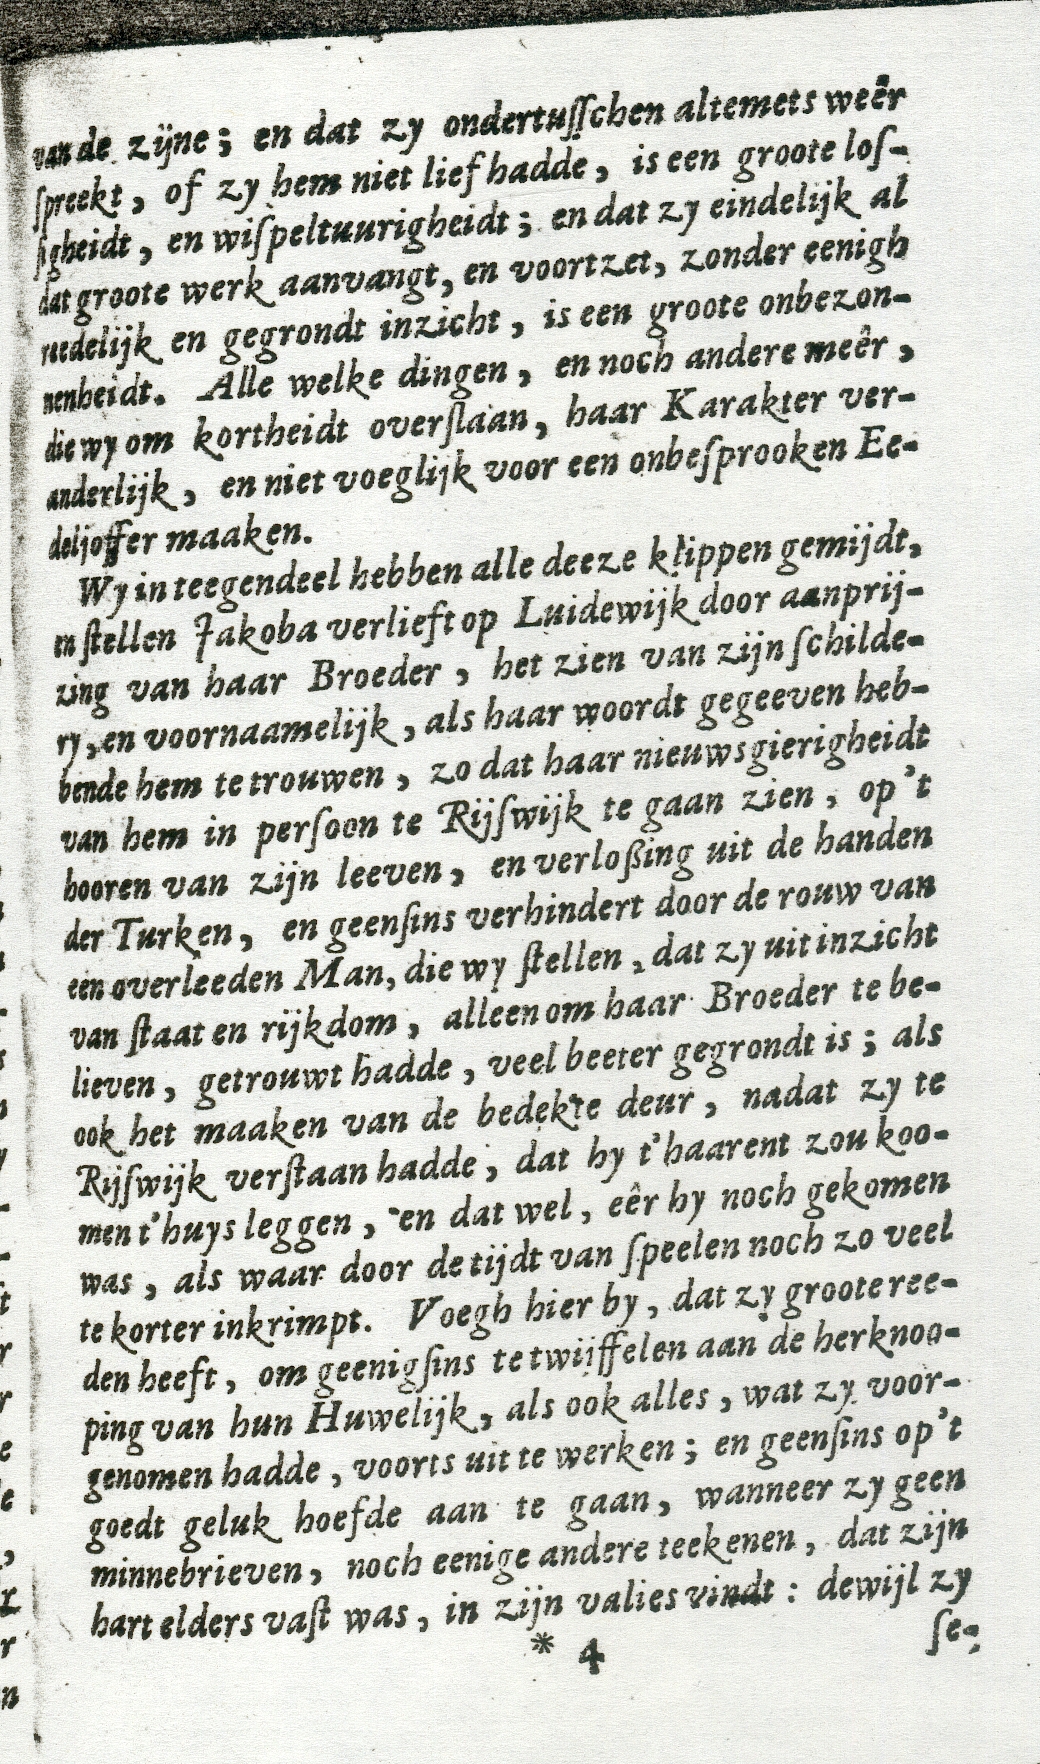 van de zijne; en dat zy ondertusſchen altemets weêr
ſpreekt, of zy hem niet lief hadde, is een groote loſ-
ſigheidt, en wiſpeltuurigheidt; en dat zy eindelijk al
dat groote werk aanvangt, en voortzet, zonder eenigh
reedelijk en gegrondt inzicht, is een groote onbezon-
nenheidt. Alle welke dingen, en noch andere meêr,
die wy om kortheidt overſlaan, haar Karakter ver-
anderlijk, en niet voeglijk voor een onbeſprooken Ee-
deljoffer maaken.
Wy in teegendeel hebben alle deeze klippen gemijdt,
en ſtellen Jakoba verlieft op Luidewijk door aanprij-
zing van haar Broeder, het zien van zijn ſchilde-
ry, en voornaamelijk, als haar woordt gegeeven heb-
bende hem te trouwen, zo dat haar nieuwsgierigheidt
van hem in perſoon te Rijſwijk te gaan zien, op't
hooren van zijn leeven, en verloßing uit de handen
der Turken, en geenſins verhindert door de rouw van
een overleeden Man, die wy ſtellen, dat zy uit inzicht
van ſtaat en rijkdom, alleen om haar Broeder te be-
lieven, getrouwt hadde, veel beeter gegrondt is; als
ook het maaken van de bedekte deur, nadat zy te
Rijſwijk verſtaan hadde, dat hy t'haarent zou koo-
men t'huys leggen, en dat wel, eêr hy noch gekomen
was, als waar door de tijdt van ſpeelen noch zo veel
te korter inkrimpt. Voegh hier by, dat zy groote ree-
den heeft, om geenigſins te twijffelen aan de herknoo-
ping van hun Huwelijk, als ook alles, wat zy voor-
genomen hadde, voorts uit te werken; en geenſins op't
goedt geluk hoefde aan te gaan, wanneer zy geen
minnebrieven, noch eenige andere teekenen, dat zijn
hart elders vaſt was, in zijn valies vindt: dewijl zy
* 4 ſe-